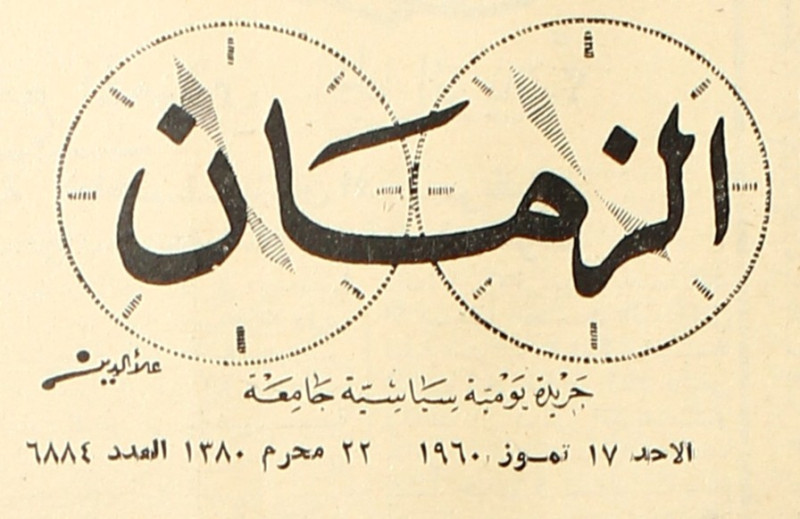 الزمان
علاء الدين
جريدة يومية سياسية جامعة
الاحد ١٧ تموز ١٩٦٠ ٢٢ محرم ١٣٨٠ العدد ٦٨٨٤